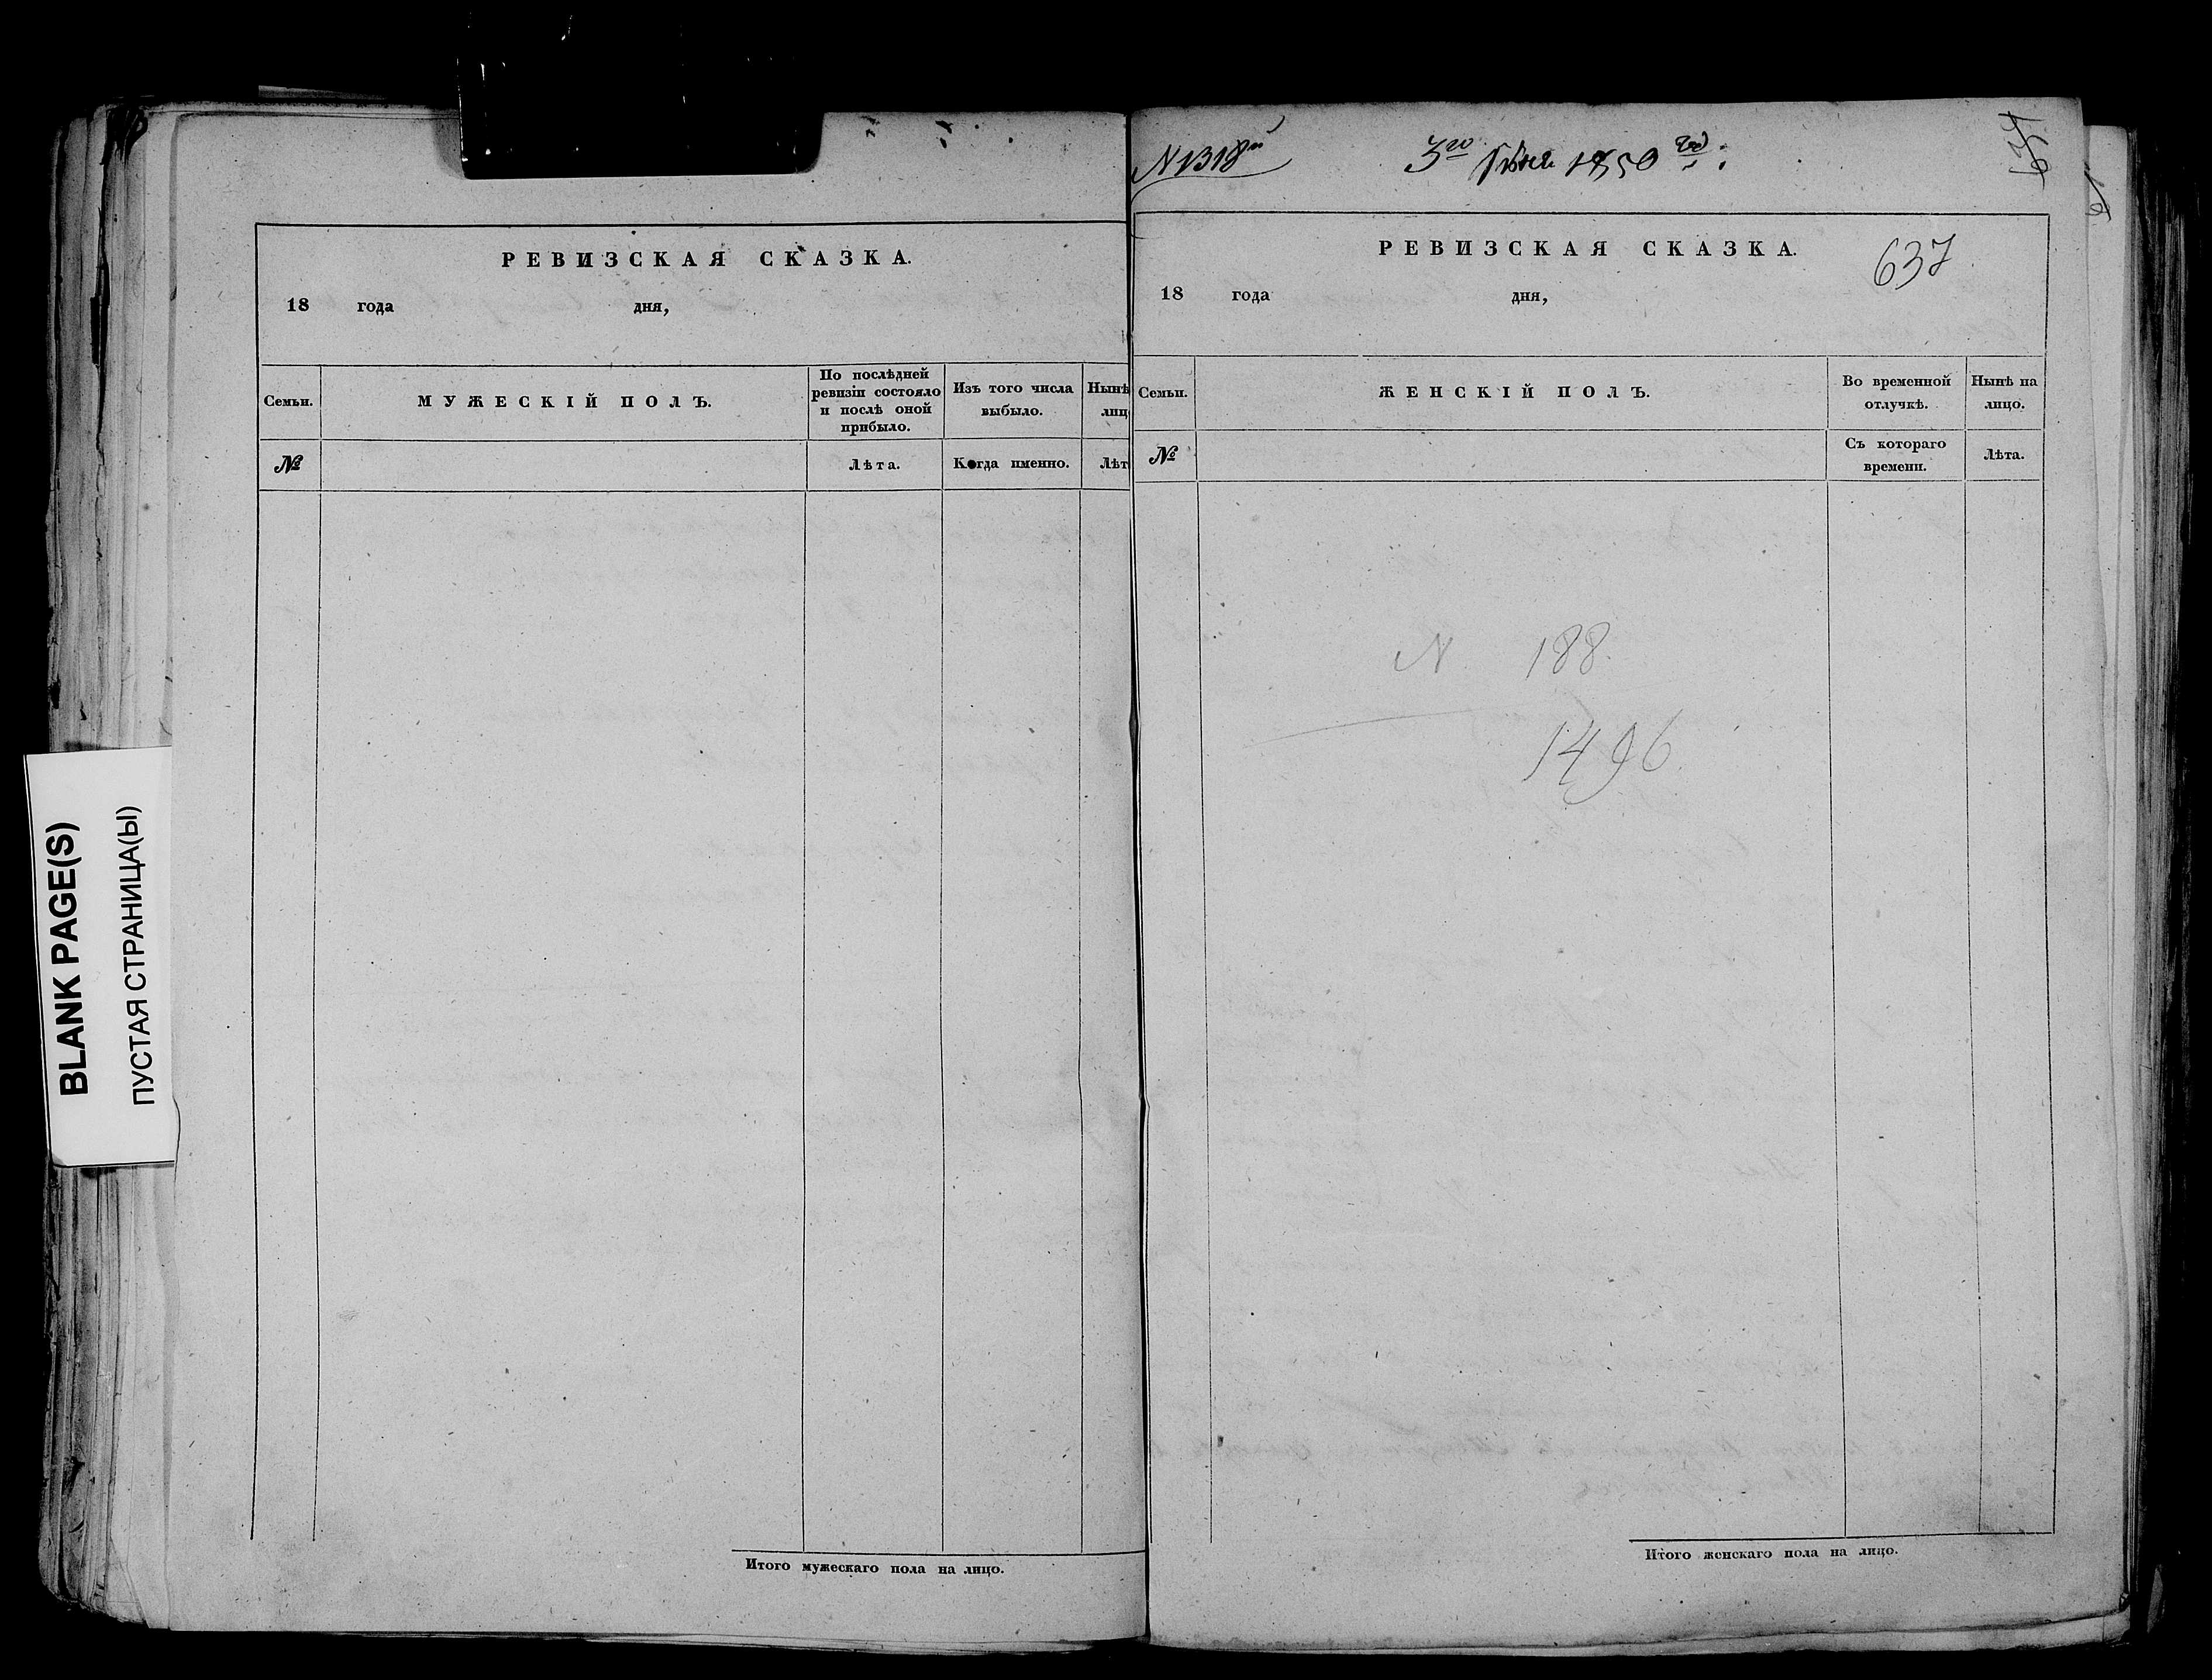 BLANK PAGE(S)
ПУСТАЯ СТРАНИЦА(Ы)
РЕВИЗСКАЯ СКАЗКА.
18 года дня,
Семьи.
МУЖЕСКІЙ ПОЛЪ.
По послѣдней
ревизіи состояло
и послѣ оной
прибыло.
Изъ того числа
выбыло.
Нынѣ
лиц
№
Лѣта.
Когда именно.
Лѣт
Итого мужескаго пола на лицо.
N 1318й
3го Іюня 1850 год:
637
РЕВИЗСКАЯ СКАЗКА.
637
18 года дня,
Семьи.
ЖЕНСКІЙ ПОЛЪ.
Во временной
отлучкѣ.
Нынѣ на
лицо.
№
Съ котораго
времени.
Лѣта.
N 188.
1496.
Итого женскаго пола на лицо.